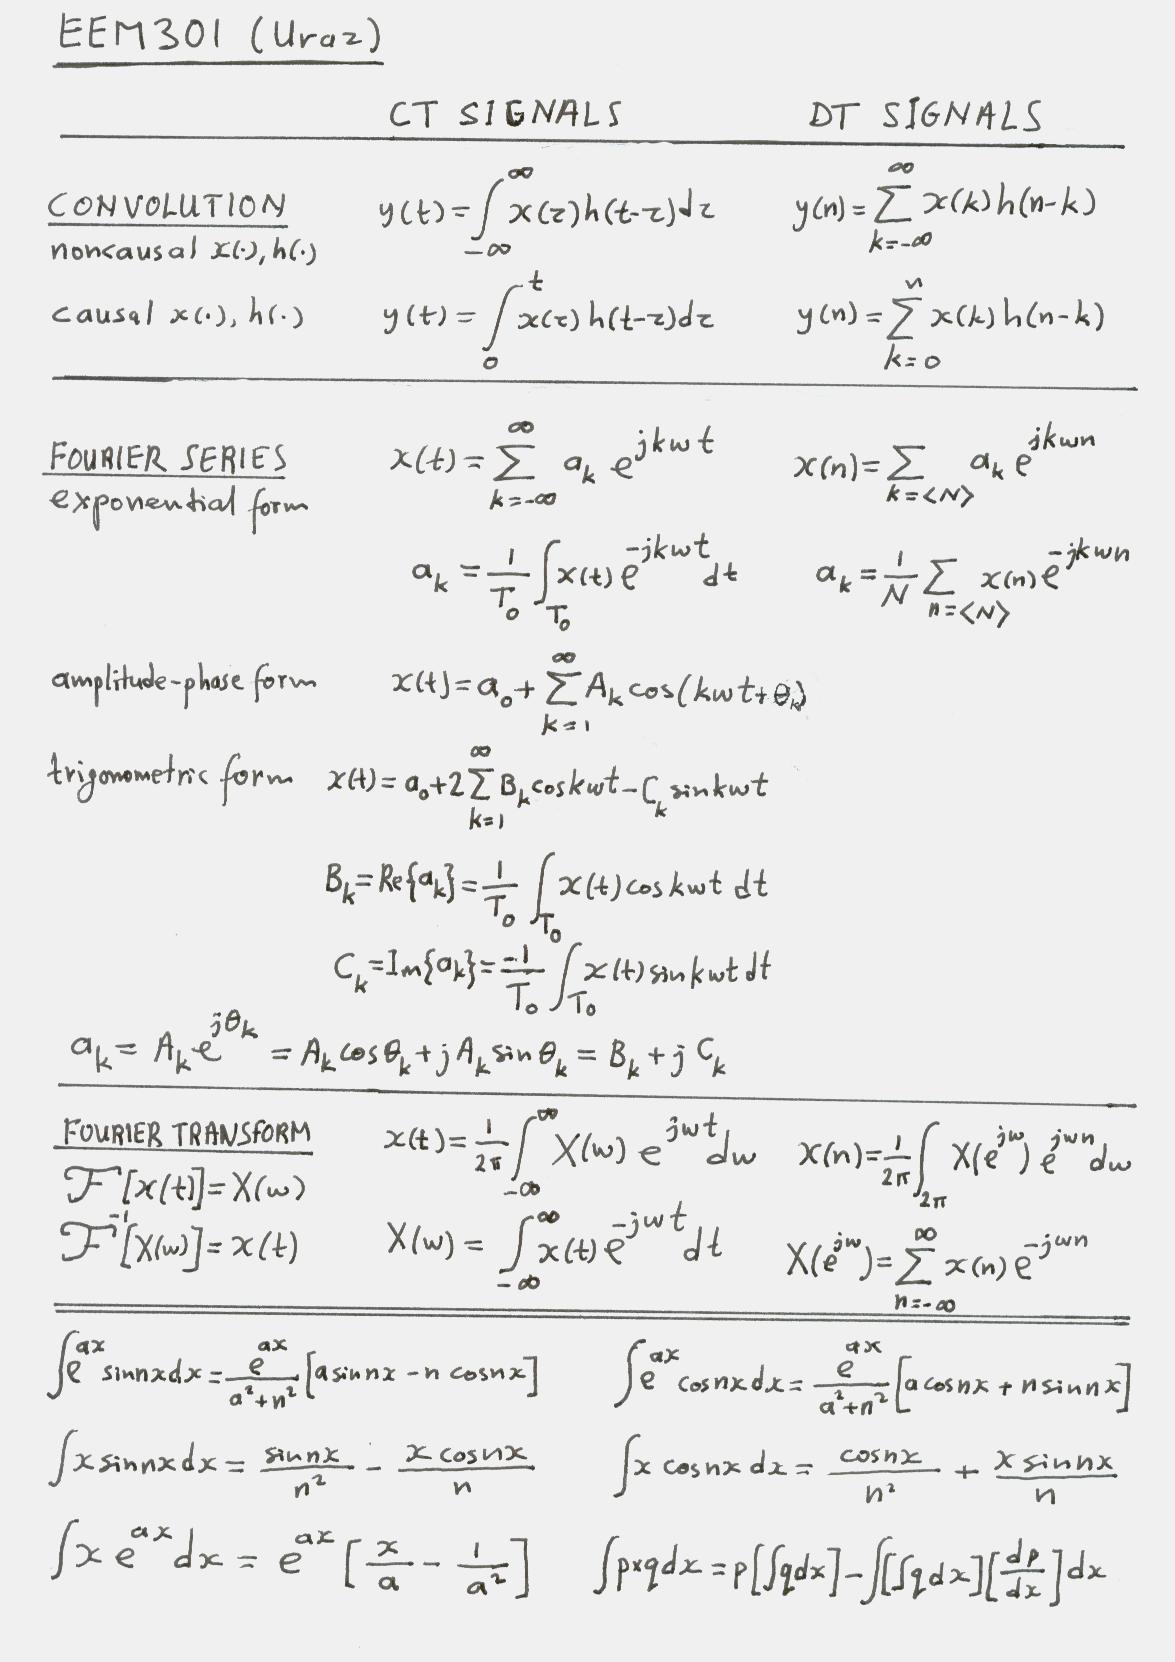 EEM301 (Uraz)
CT SIGNALS DT SIGNALS
CONVOLUTION y(t) = ∫_{-∞}^{∞} x(τ)h(t-τ)dτ y(n) = ∑_{k=-∞}^{∞} x(k)h(n-k)
noncausal x(·), h(·)
causal x(·), h(·) y(t) = ∫_{0}^{t} x(τ)h(t-τ)dτ y(n) = ∑_{k=0}^{n} x(k)h(n-k)
FOURIER SERIES x(t) = ∑_{k=-∞}^{∞} a_k e^{jkwt} x(n) = ∑_{k=<N>} a_k e^{jkwn}
exponential form
a_k = 1/T_0 ∫_{T_0} x(t) e^{-jkwt} dt a_k = 1/N ∑_{n=<N>} x(n) e^{-jkwn}
amplitude-phase form x(t) = a_0 + ∑_{k=1}^{∞} A_k cos(kwt+θ_k)
trigonometric form x(t) = a_0 + 2∑_{k=1}^{∞} B_k coskwt - C_k sinkwt
B_k = Re{a_k} = 1/T_0 ∫_{T_0} x(t) cos kwt dt
C_k = Im{a_k} = -1/T_0 ∫_{T_0} x(t) sin kwt dt
a_k = A_k e^{jθ_k} = A_k cosθ_k + j A_k sin θ_k = B_k + j C_k
FOURIER TRANSFORM x(t) = 1/2π ∫_{-∞}^{∞} X(w) e^{jwt} dw x(n) = 1/2π ∫_{2π} X(e^{jw}) e^{jwn} dw
F[x(t)] = X(w)
F^{-1}[X(w)] = x(t) X(w) = ∫_{-∞}^{∞} x(t) e^{-jwt} dt X(e^{jw}) = ∑_{n=-∞}^{∞} x(n) e^{-jwn}
∫e^{ax} sinnx dx = e^{ax}/(a²+n²) [a sinnx - n cosnx] ∫e^{ax} cosnx dx = e^{ax}/(a²+n²) [a cosnx + n sinnx]
∫x sinnx dx = sinnx/n² - x cosnx/n ∫x cosnx dx = cosnx/n² + x sinnx/n
∫x e^{ax} dx = e^{ax} [x/a - 1/a²] ∫p×q dx = p[∫q dx] - ∫[∫q dx][dp/dx] dx